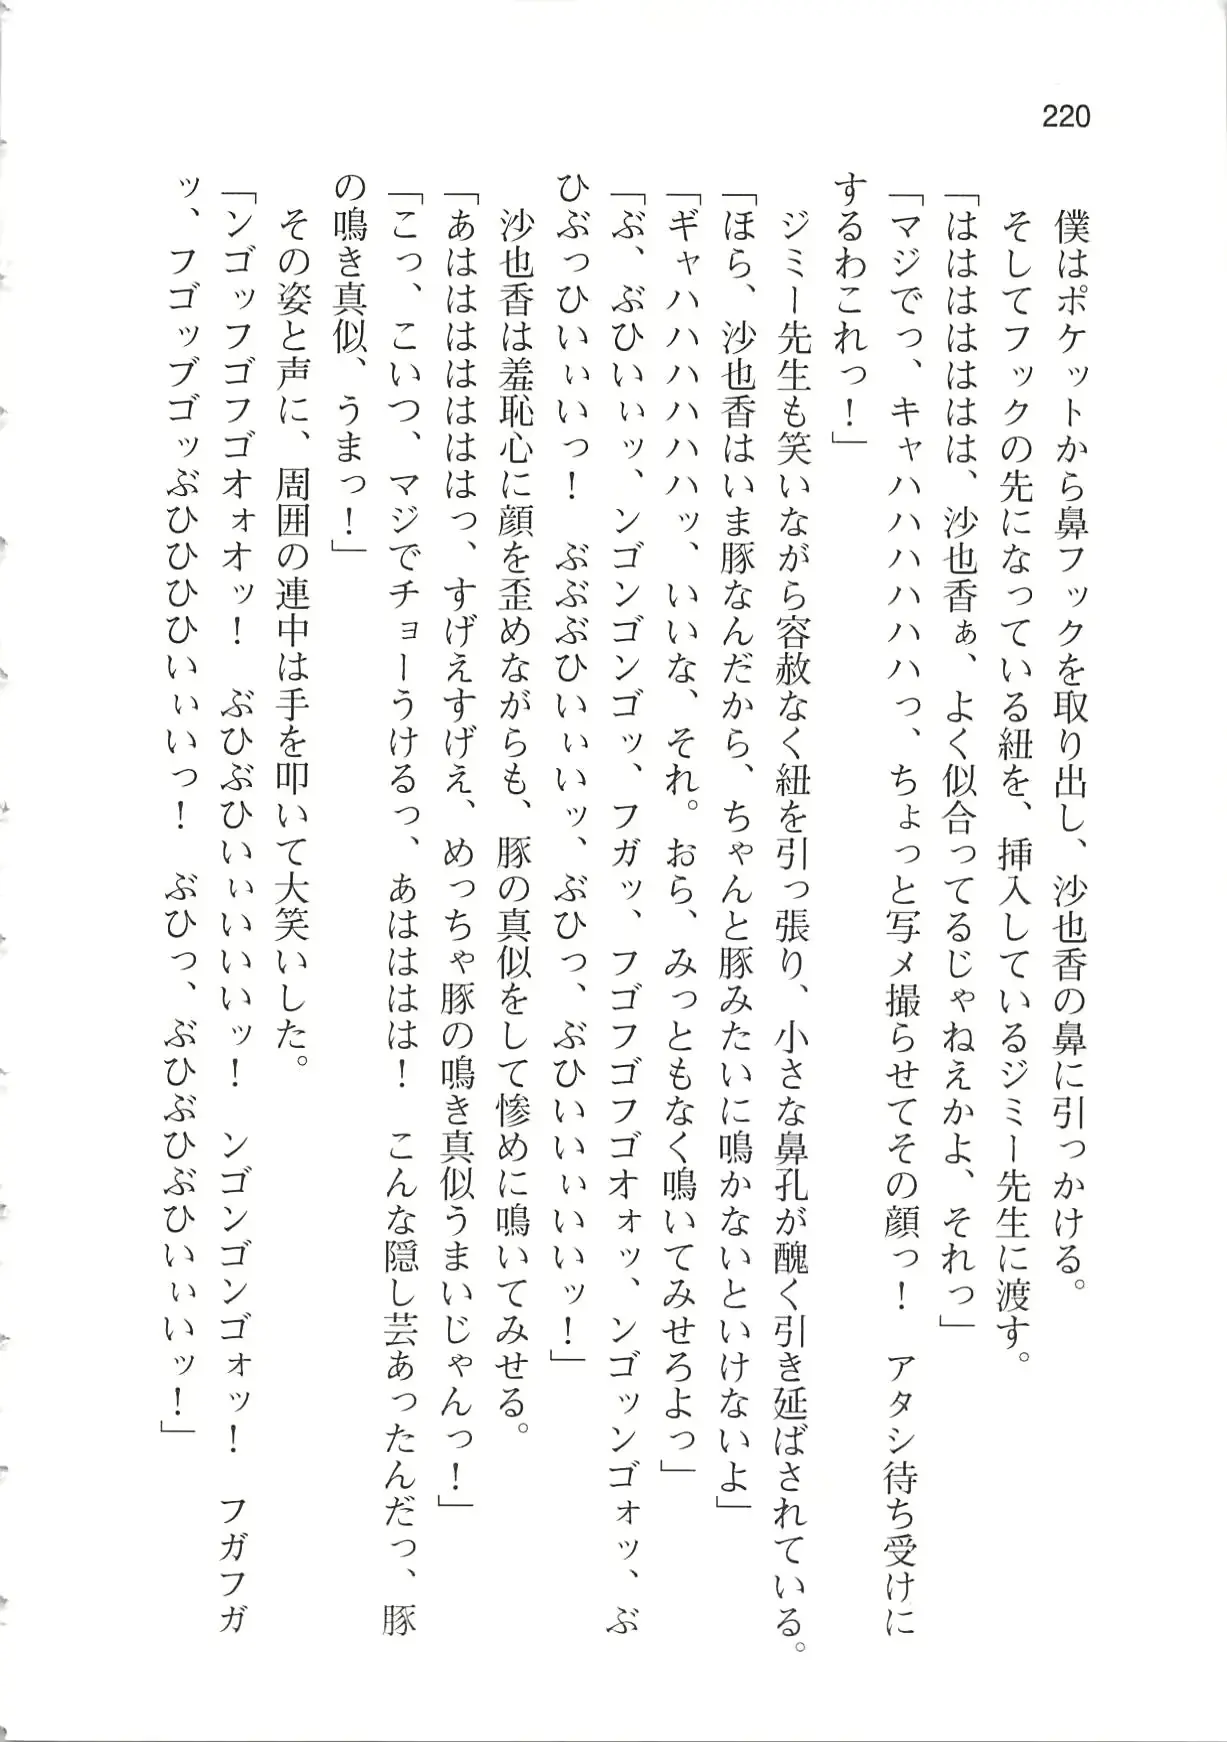 220
僕はポケットから鼻フックを取り出し、沙也香の鼻に引っかける。
そしてフックの先になっている紐を、挿入しているジミー先生に渡す。
「ははははははは、沙也香ぁ、よく似合ってるじゃねえかよ、それっ」
「マジでっ、キャハハハハハハっ、ちょっと写メ撮らせてその顔っ！　アタシ待ち受けに
するわこれっ！」
ジミー先生も笑いながら容赦なく紐を引っ張り、小さな鼻孔が醜く引き延ばされている。
「ほら、沙也香はいま豚なんだから、ちゃんと豚みたいに鳴かないといけないよ」
「ギャハハハハハハッ、いいな、それ。おら、みっともなく鳴いてみせろよっ」
「ぶ、ぶひいぃッ、ンゴンゴンゴッ、フガッ、フゴフゴフゴオォッ、ンゴッンゴォッ、ぶ
ひぶっひいぃいっ！　ぶぶぶひいぃいッ、ぶひっ、ぶひいいぃいいッ！」
沙也香は羞恥心に顔を歪めながらも、豚の真似をして惨めに鳴いてみせる。
「あはははははははっ、すげえすげえ、めっちゃ豚の鳴き真似うまいじゃんっ！」
「こっ、こいつ、マジでチョーうけるっ、あはははは！　こんな隠し芸あったんだっ、豚
の鳴き真似、うまっ！」
その姿と声に、周囲の連中は手を叩いて大笑いした。
「ンゴッフゴフゴオォオッ！　ぶひぶひいぃいいいッ！　ンゴンゴンゴォッ！　フガフガ
ッ、フゴッブゴッぶひひひひいぃいっ！　ぶひっ、ぶひぶひぶひいぃいッ！」